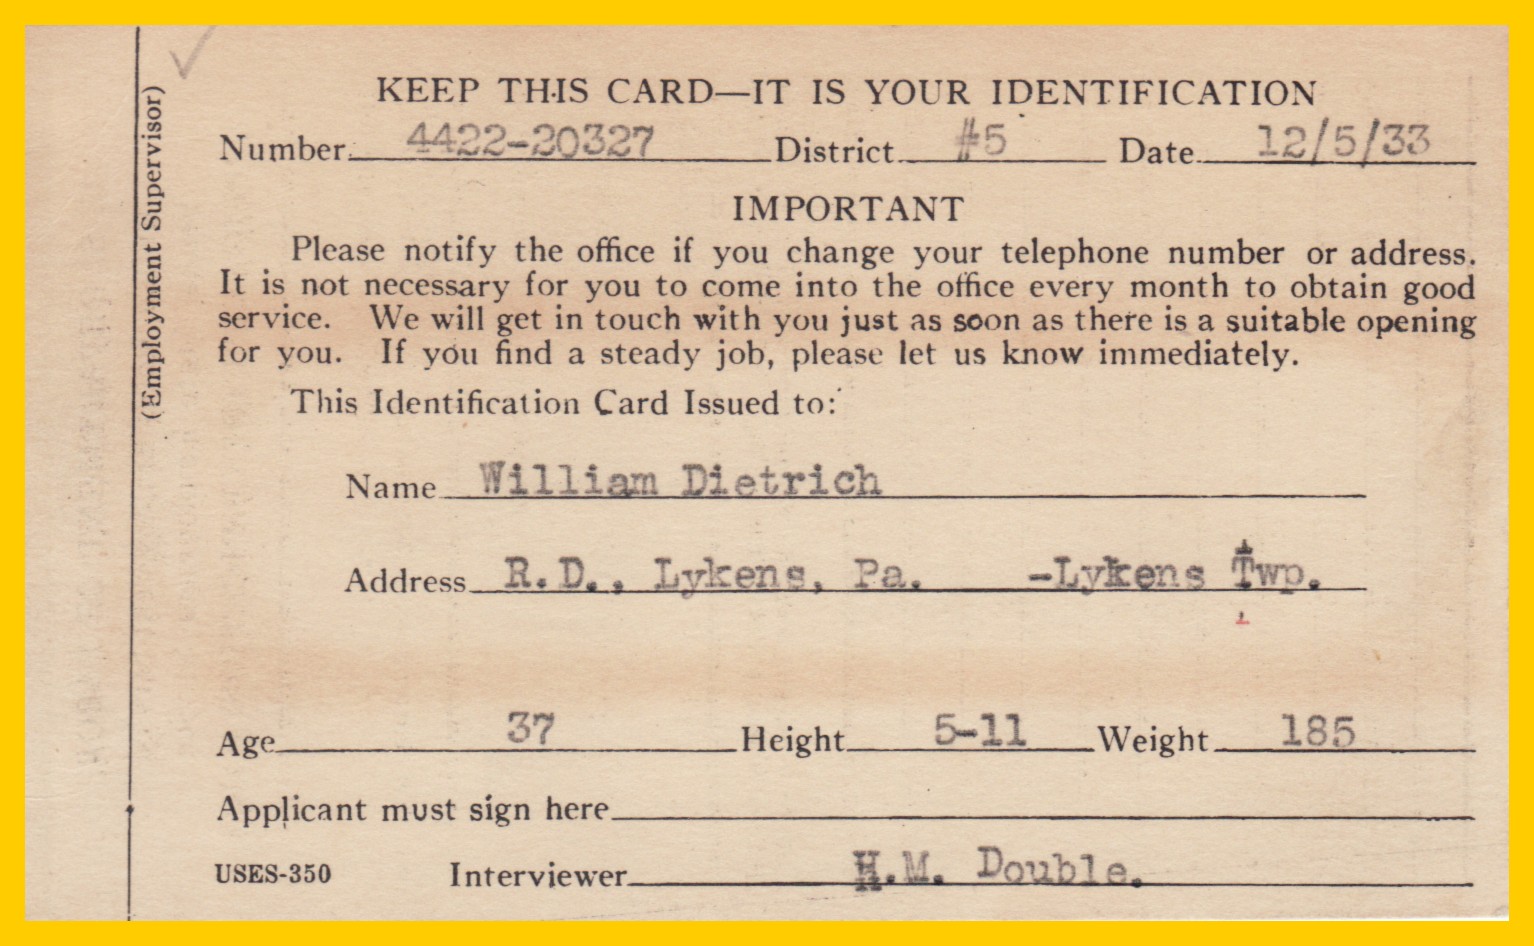 KEEP THIS CARD—IT IS YOUR IDENTIFICATION
Number 4422-20327 District #5 Date 12/5/33
IMPORTANT
Please notify the office if you change your telephone number or address.
It is not necessary for you to come into the office every month to obtain good
service. We will get in touch with you just as soon as there is a suitable opening
for you. If you find a steady job, please let us know immediately.
This Identification Card Issued to:
Name William Dietrich
Address R.D., Lykens, Pa. -Lykens Twp.
Age 37 Height 5-11 Weight 185
Applicant must sign here
USES-350 Interviewer H.M. Double.
(Employment Supervisor)